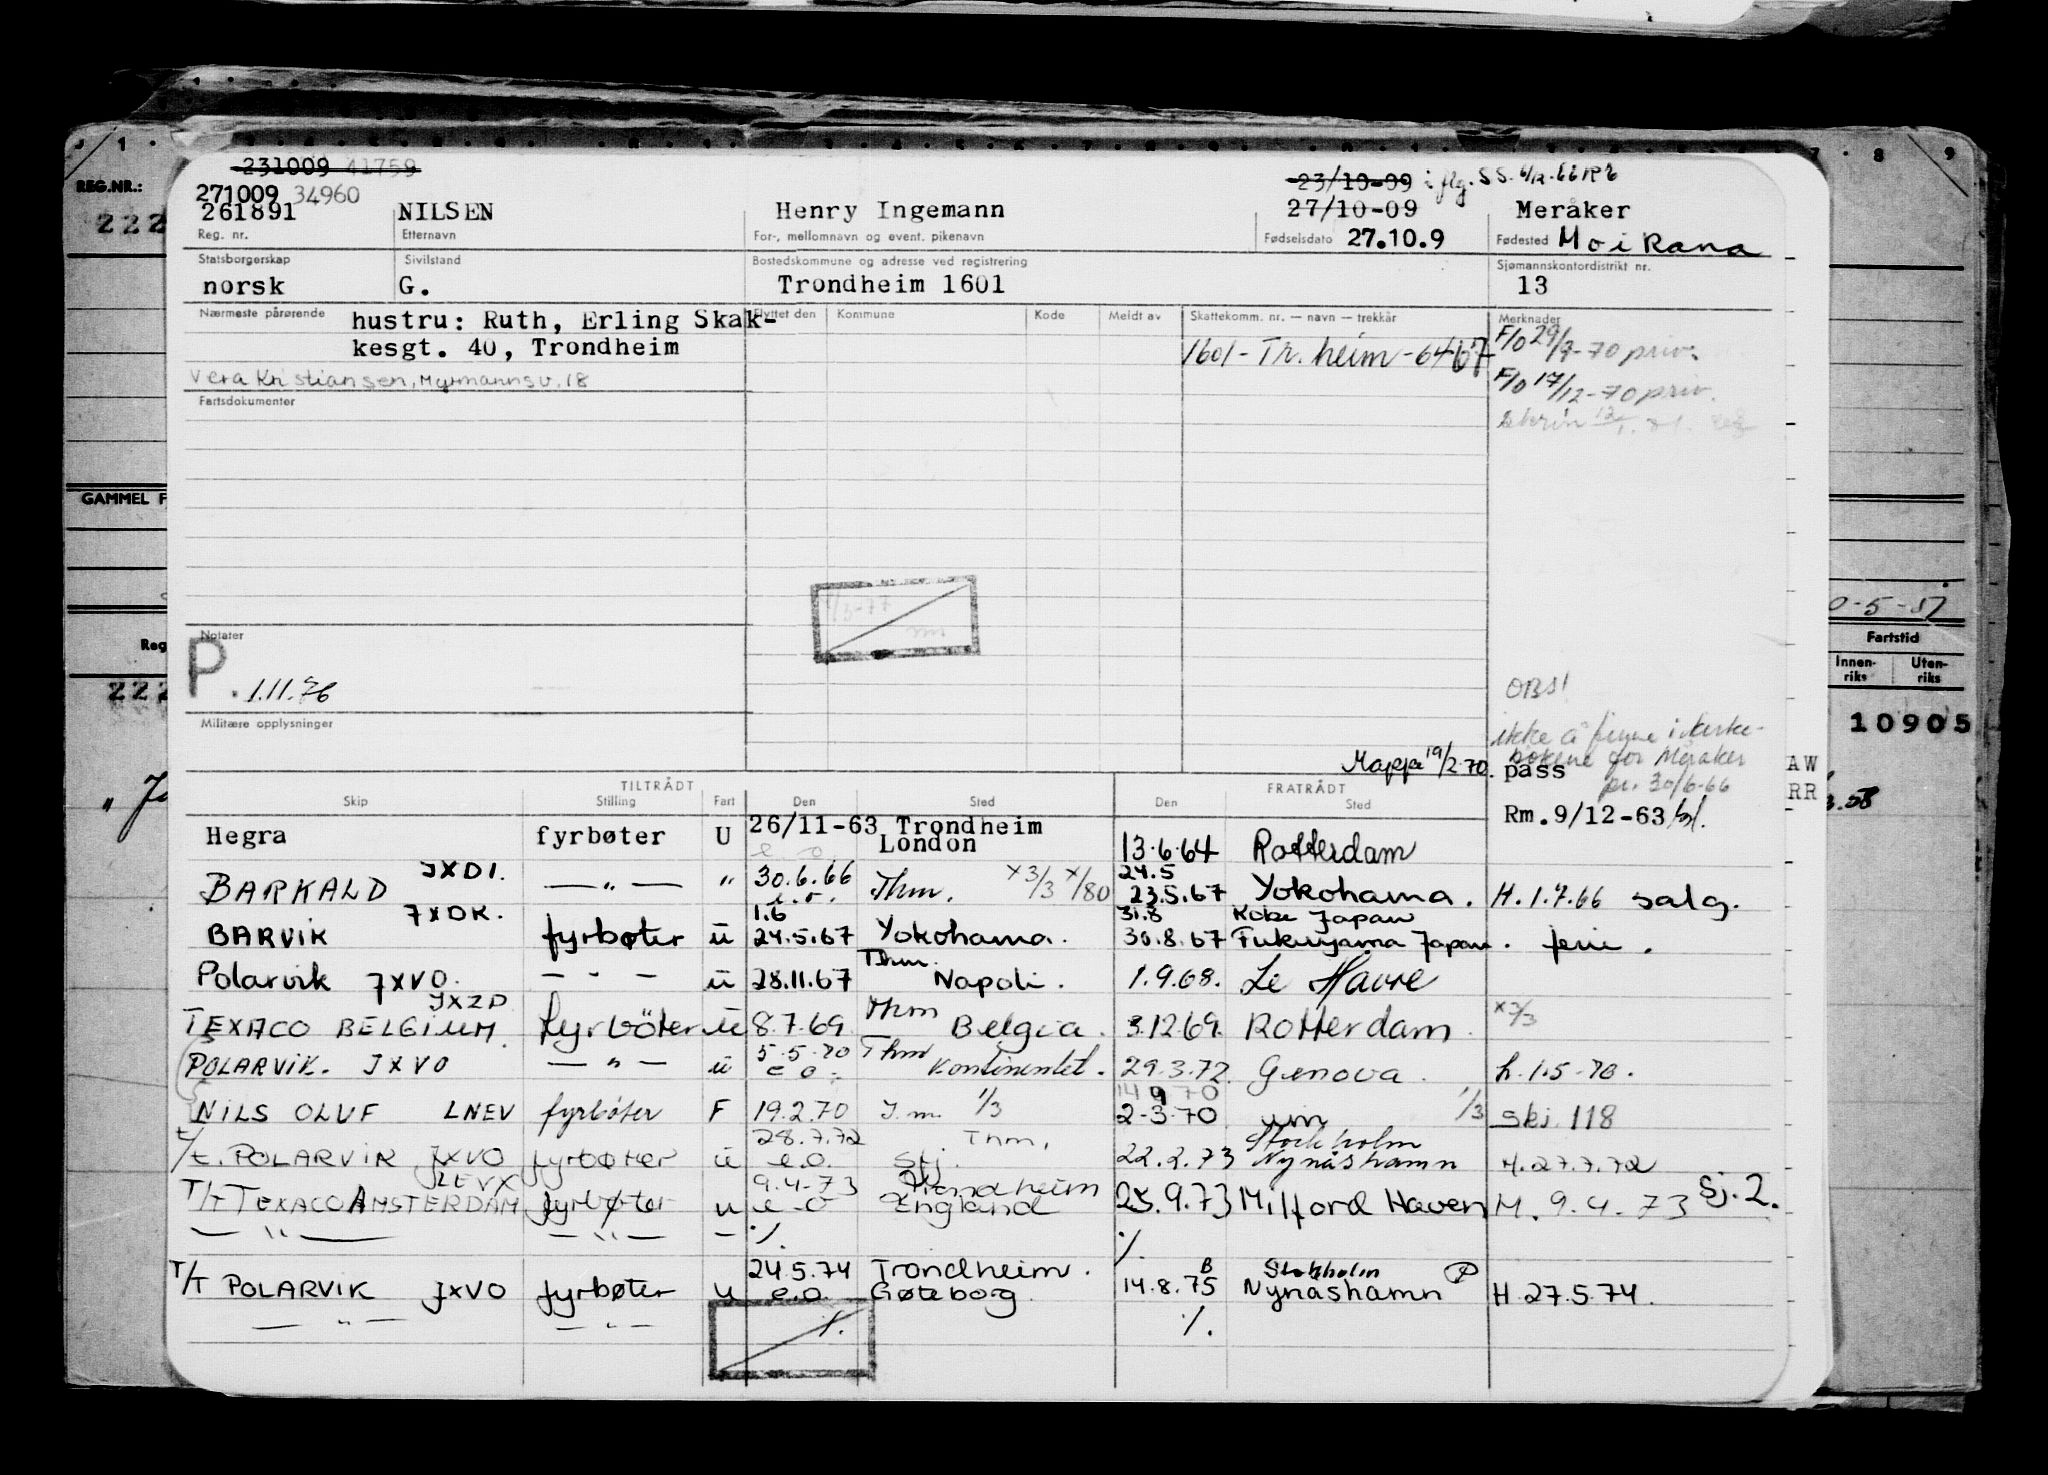 231009 41759
271009 34960
23/10-09 i flg. SS.
REG.NR.:
222
261891 NILSEN Henry Ingemann 27/10-09 Meråker
Reg. nr. Etternavn For-, mellomnavn og event. pikenavn Fødselsdato 27.10.9 Fødested Mo i Rana
Statsborgerskap Sivilstand Bostedskommune og adresse ved registrering Sjømannskontordistrikt nr.
norsk G. Trondheim 1601 13
Nærmeste pårørende hustru: Ruth, Erling Skak- Flyttet den Kommune Kode Meldt av Skattekomm. nr. — navn — trekkår Merknader
kesgt. 40, Trondheim 1601 - Tr.heim - 6467 F/O 29/9-70 priv.
Vera Kristiansen, Myrmannsv. 18 F/O 17/12-70 priv.
Fartsdokumenter
GAMMEL F
Notater
P. 1.11.76
Militære opplysninger
OBS!
ikke å finne i kirke-
bøkene for Meråker
pr. 30/6-66
Mappe 19/2-70. pass
Fartstid
Innen-riks Uten-riks
10905
TILTRÅDT FRATRÅDT
Skip Stilling Fart Den Sted Den Sted
Rm. 9/12-63
Hegra fyrbøter U 26/11-63 Trondheim
London 13.6.64 Rotterdam
JXDI. 24.5
BARKALD — " — " 30.6.66 Thm. x3/3 x/80 23.5.67 Yokohama. H. 1.7.66 salg.
e.o.
JXDK. 1.6 31.8 Kobe Japan
BARVIK fyrbøter u 24.5.67 Yokohama. 30.8.67 Fukuyama Japan. ferie.
Thm.
Polarvik JXVO. — " — u 28.11.67 Napoli. 1.9.68. Le Havre
JXZP Thm
TEXACO BELGIUM. fyrbøter u 8.7.69 Belgia. 3.12.69. Rotterdam x3/3
5.5.70 Thm
POLARVIK. JXVO — " — u e.o. Kontinentet. 29.3.72. Genova. h. 1.5-70.
NILS OLUF LNEV fyrbøter F 19.2.70 I.m. 1/3 2-3.70 um 1/3 skj. 118
28.7.72 Thm. Stockholm
t/t. POLARVIK JXVO fyrbøter u e.o. 22.2.73 Nynäshamn H. 27.7.72
9.4.73 Trondheim
T/T TEXACO AMSTERDAM fyrbøter u e.o England 25.9.73 Milford Haven M. 9.4.73 Sj. 2.
— " — — " — — ./. ./.
24.5.74 Trondheim. Stockholm
T/T POLARVIK JXVO fyrbøter u e.o. Gøteborg 14.8.75 Nynäshamn H. 27.5.74.
— " — — " — ./. ./.